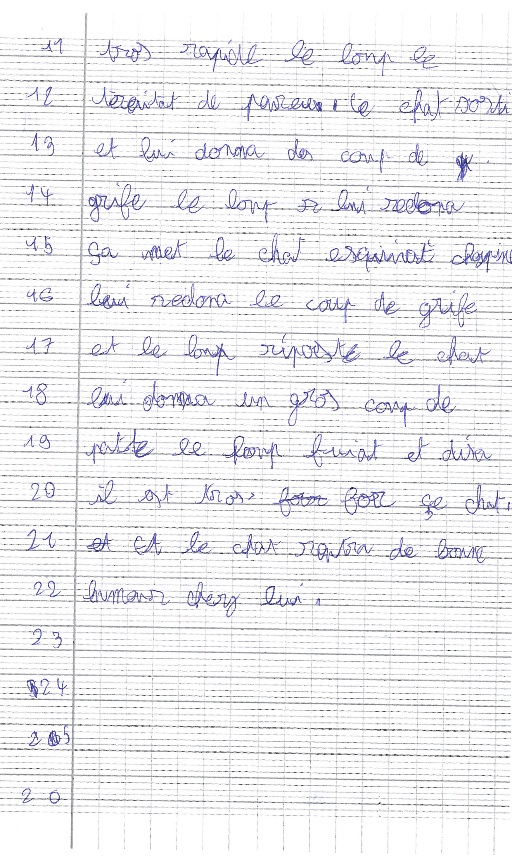 11 tros rapide le loup le
12 de pareur. le chat sorti
13 et lui donna des coup de
14 grife le loup lui redona
15 ça met le chat esquivat
16 lui redona le coup de grife
17 et le loup riposte le chat
18 lui donna un gros coup de
19 patte le loup fuiat et disa
20 il est tros forr ce chat.
21 et le chat rentra de bonne
22 humeur cherz lui.
23
24
25
20